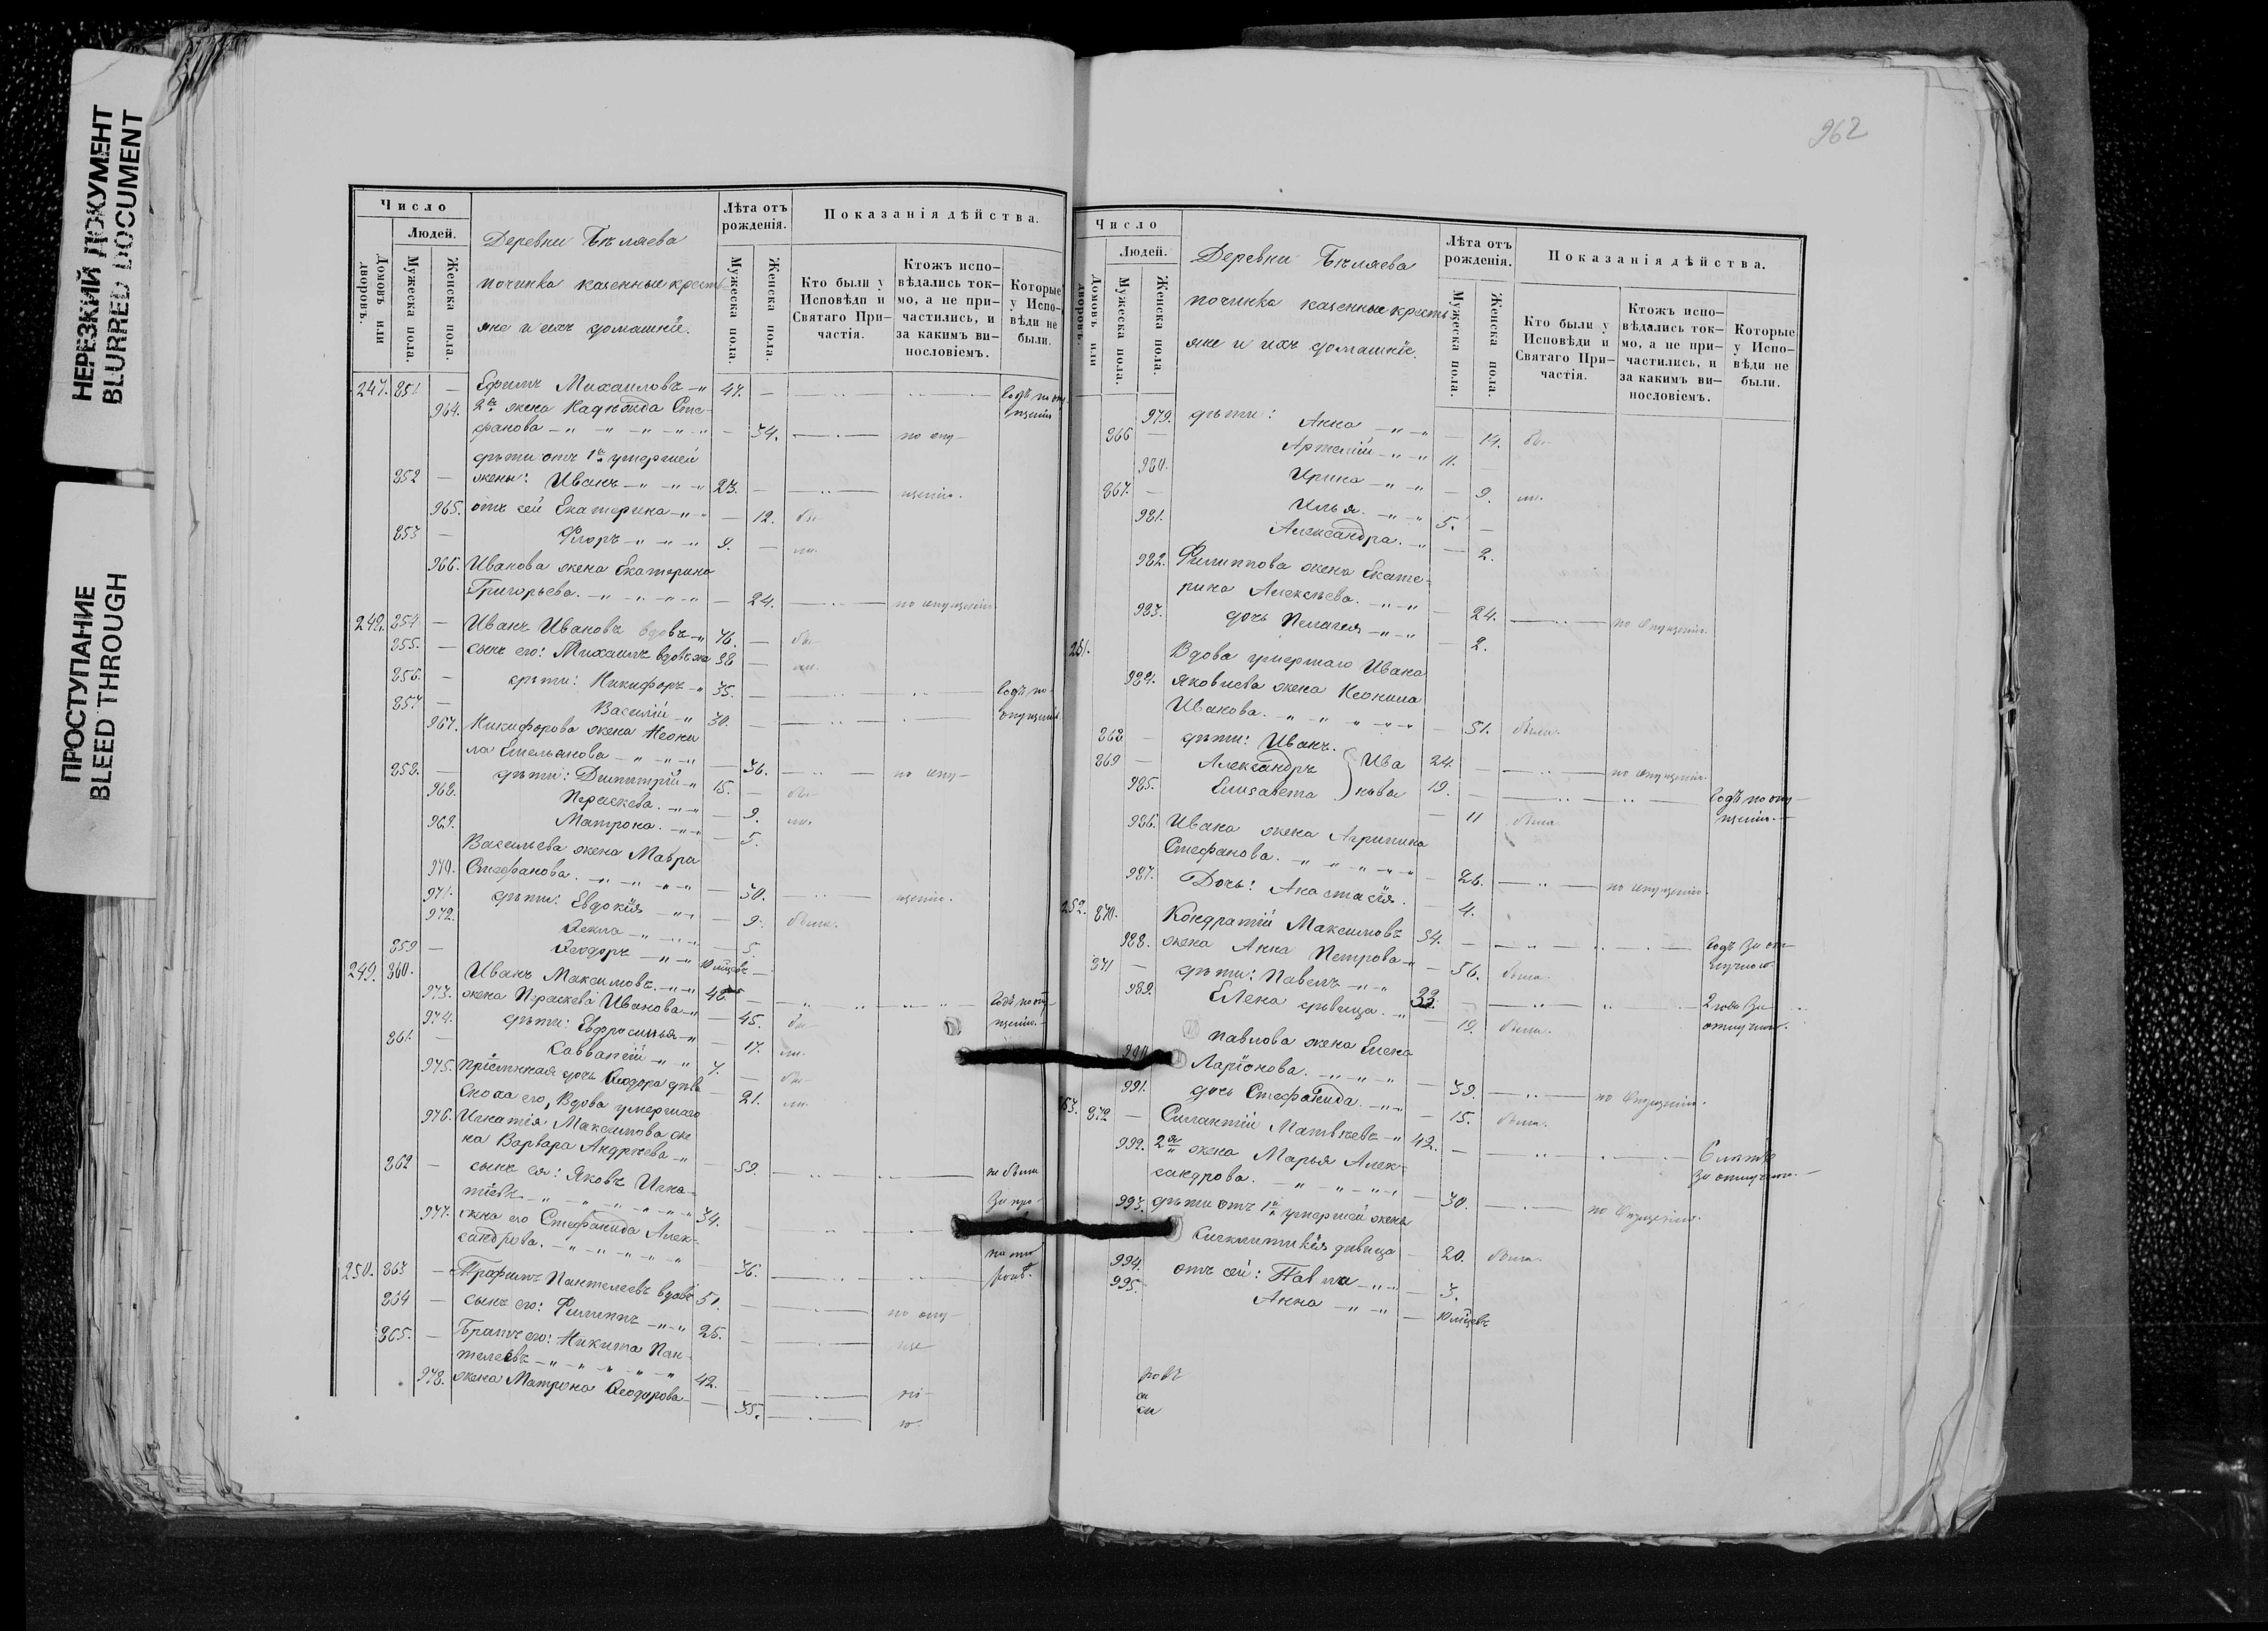 НЕРЕЗКИЙ ДОКУМЕНТ
BLURRED DOCUMENT
ПРОСТУПАНИЕ
BLEED THROUGH
Число
Людей.
Домовъ или дворовъ.
Мужеска пола.
Женска пола.
Деревни Бѣляева
починка казенные кресть
яне и ихъ домашніе.
Лѣта отъ рожденія.
Мужеска пола.
Женска пола.
Показанія дѣйства.
Кто были у Исповѣди и Святаго Причастія.
Ктожъ исповѣдались токмо, а не причастились, и за какимъ винословіемъ.
Которые у Исповѣди не были.
247. 851 — Ефимъ Михаиловъ 47. —
964. 2я жена Надѣжда Сте-
фанова — 34. по опу-
дѣти отъ 1й умершей
852 — жены: Иванъ 23. — щенію.
965. отъ сей Екатерина — 12. бы-
853 — Флоръ 9. — ли.
966. Иванова жена Екатерина
Григорьева. — 24. по опущенію
248. 854 — Иванъ Ивановъ вдовъ 76. — бы-
855. — сынъ его: Михаилъ вдовъ 58 — ли.
856. — дѣти: Никифоръ 35. — Годъ по
857 — Василій 30. — опущенію
967. Никифорова жена Неони
ла Емельянова — 36. по опу-
858. — дѣти: Димитрій 15. — бы-
968. Параскева. — 9. ли.
969. Матрона. — 5.
Васильева жена Мавра
970. Стефанова. — 30. щенію.
971. дѣти: Евдокія — 9. была.
972. Ѳекла — 5.
859 — Ѳеодоръ 10 мѣсцвъ —
249. 860. Иванъ Максимовъ. 48. —
973. жена Параскева Иванова — 45. бы-
974. дѣти: Евфросинья — 17. ли.
861. — Савватій 7. — бы-
975. пріемная дочь Ѳеодора дѣв — 21. ли.
Сноха его, Вдова умершаго
976. Игнатія Максимова же
на Варвара Андреева — 59. не была
862 — сынъ ея: Яковъ Игна-
тіевъ 34. —
977. жена его Стефанида Алек-
сандрова. — 36.
250. 863 — Трофимъ Пантелеевъ вдовъ 51. — по опу-
864 — сынъ его: Филиппъ 25. — ще
865. — Братъ его: Никита Пан-
телеевъ 42. — ні-
978. жена Матрона Ѳеодорова — 35. ю.
962
Число
Людей.
Домовъ или дворовъ.
Мужеска пола.
Женска пола.
Деревни Бѣляева
починка казенные кресть
яне и ихъ домашніе.
Лѣта отъ рожденія.
Мужеска пола.
Женска пола.
Показанія дѣйства.
Кто были у Исповѣди и Святаго Причастія.
Ктожъ исповѣдались токмо, а не причастились, и за какимъ винословіемъ.
Которые у Исповѣди не были.
979. дѣти: Анна — 14. бы-
866 — Артемій 11. —
980. Ирина — 9. ли.
867. — Илья. 5. —
981. Александра. — 2.
982. Филиппова жена Екате-
рина Алексѣева. — 24. по опущенію.
983. дочь Пелагея — 2.
251. Вдова умершаго Ивана
984. Яковлева жена Неонила
Иванова. — 51. была.
868 — дѣти: Иванъ. 24. — по опущенію.
869 — Александръ } Ива 19. — Годъ по опу-
985. Елисавета } новы — 11 была. щенію.
986. Ивана жена Агрипина
Стефанова. — 26. по опущенію.
987. Дочь: Анастасія. — 4.
252. 870. Кондратій Максимовъ 54. — Годъ за от-
988. жена Анна Петрова — 56. была. лучкою.
871 — дѣти: Павелъ 33. — 2 года за
989. Елена дѣвица. — 19. была. отлучкою.
Павлова жена Елена
990 Ларіонова. — 39. по опущенію.
991. дочь Стефанида. — 15. была.
253. 872 — Силантій Матвѣевъ 42. — 6 лѣтъ
992. 2я жена Марья Алек- за отлучкою.
сандрова. — 30. по опущенію.
993. дѣти отъ 1й умершей жены
Синклитикія дѣвица — 20. была.
994. отъ сей: Павла — 3.
995. Анна — 10 мѣсцвъ